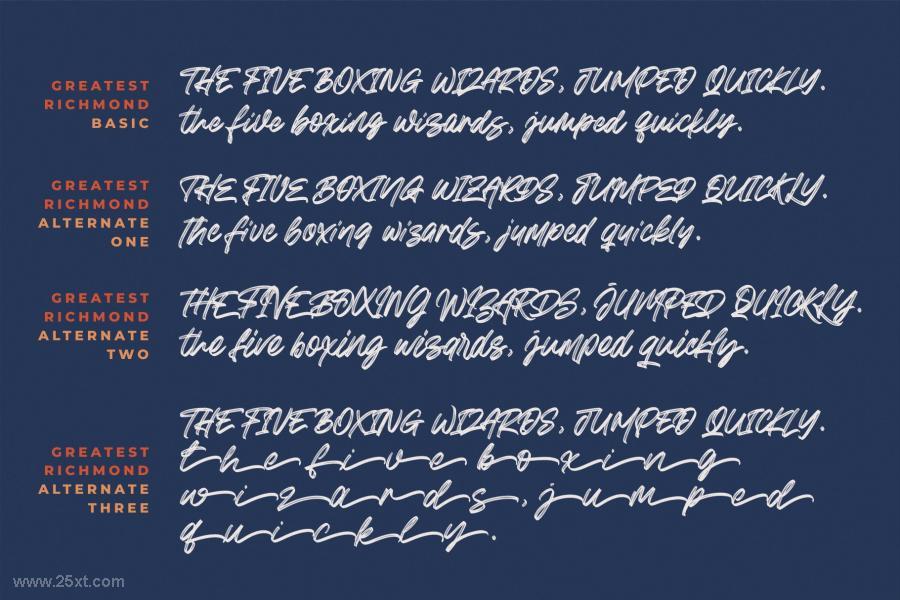 GREATEST
RICHMOND
BASIC
THE FIVE BOXING WIZARDS, JUMPED QUICKLY.
the five boxing wizards, jumped quickly.
GREATEST
RICHMOND
ALTERNATE
ONE
THE FIVE BOXING WIZARDS, JUMPED QUICKLY.
the five boxing wizards, jumped quickly.
GREATEST
RICHMOND
ALTERNATE
TWO
THE FIVE BOXING WIZARDS, JUMPED QUICKLY.
the five boxing wizards, jumped quickly.
GREATEST
RICHMOND
ALTERNATE
THREE
THE FIVE BOXING WIZARDS, JUMPED QUICKLY.
the five boxing
wizards, jumped
quickly.
www.25xt.com